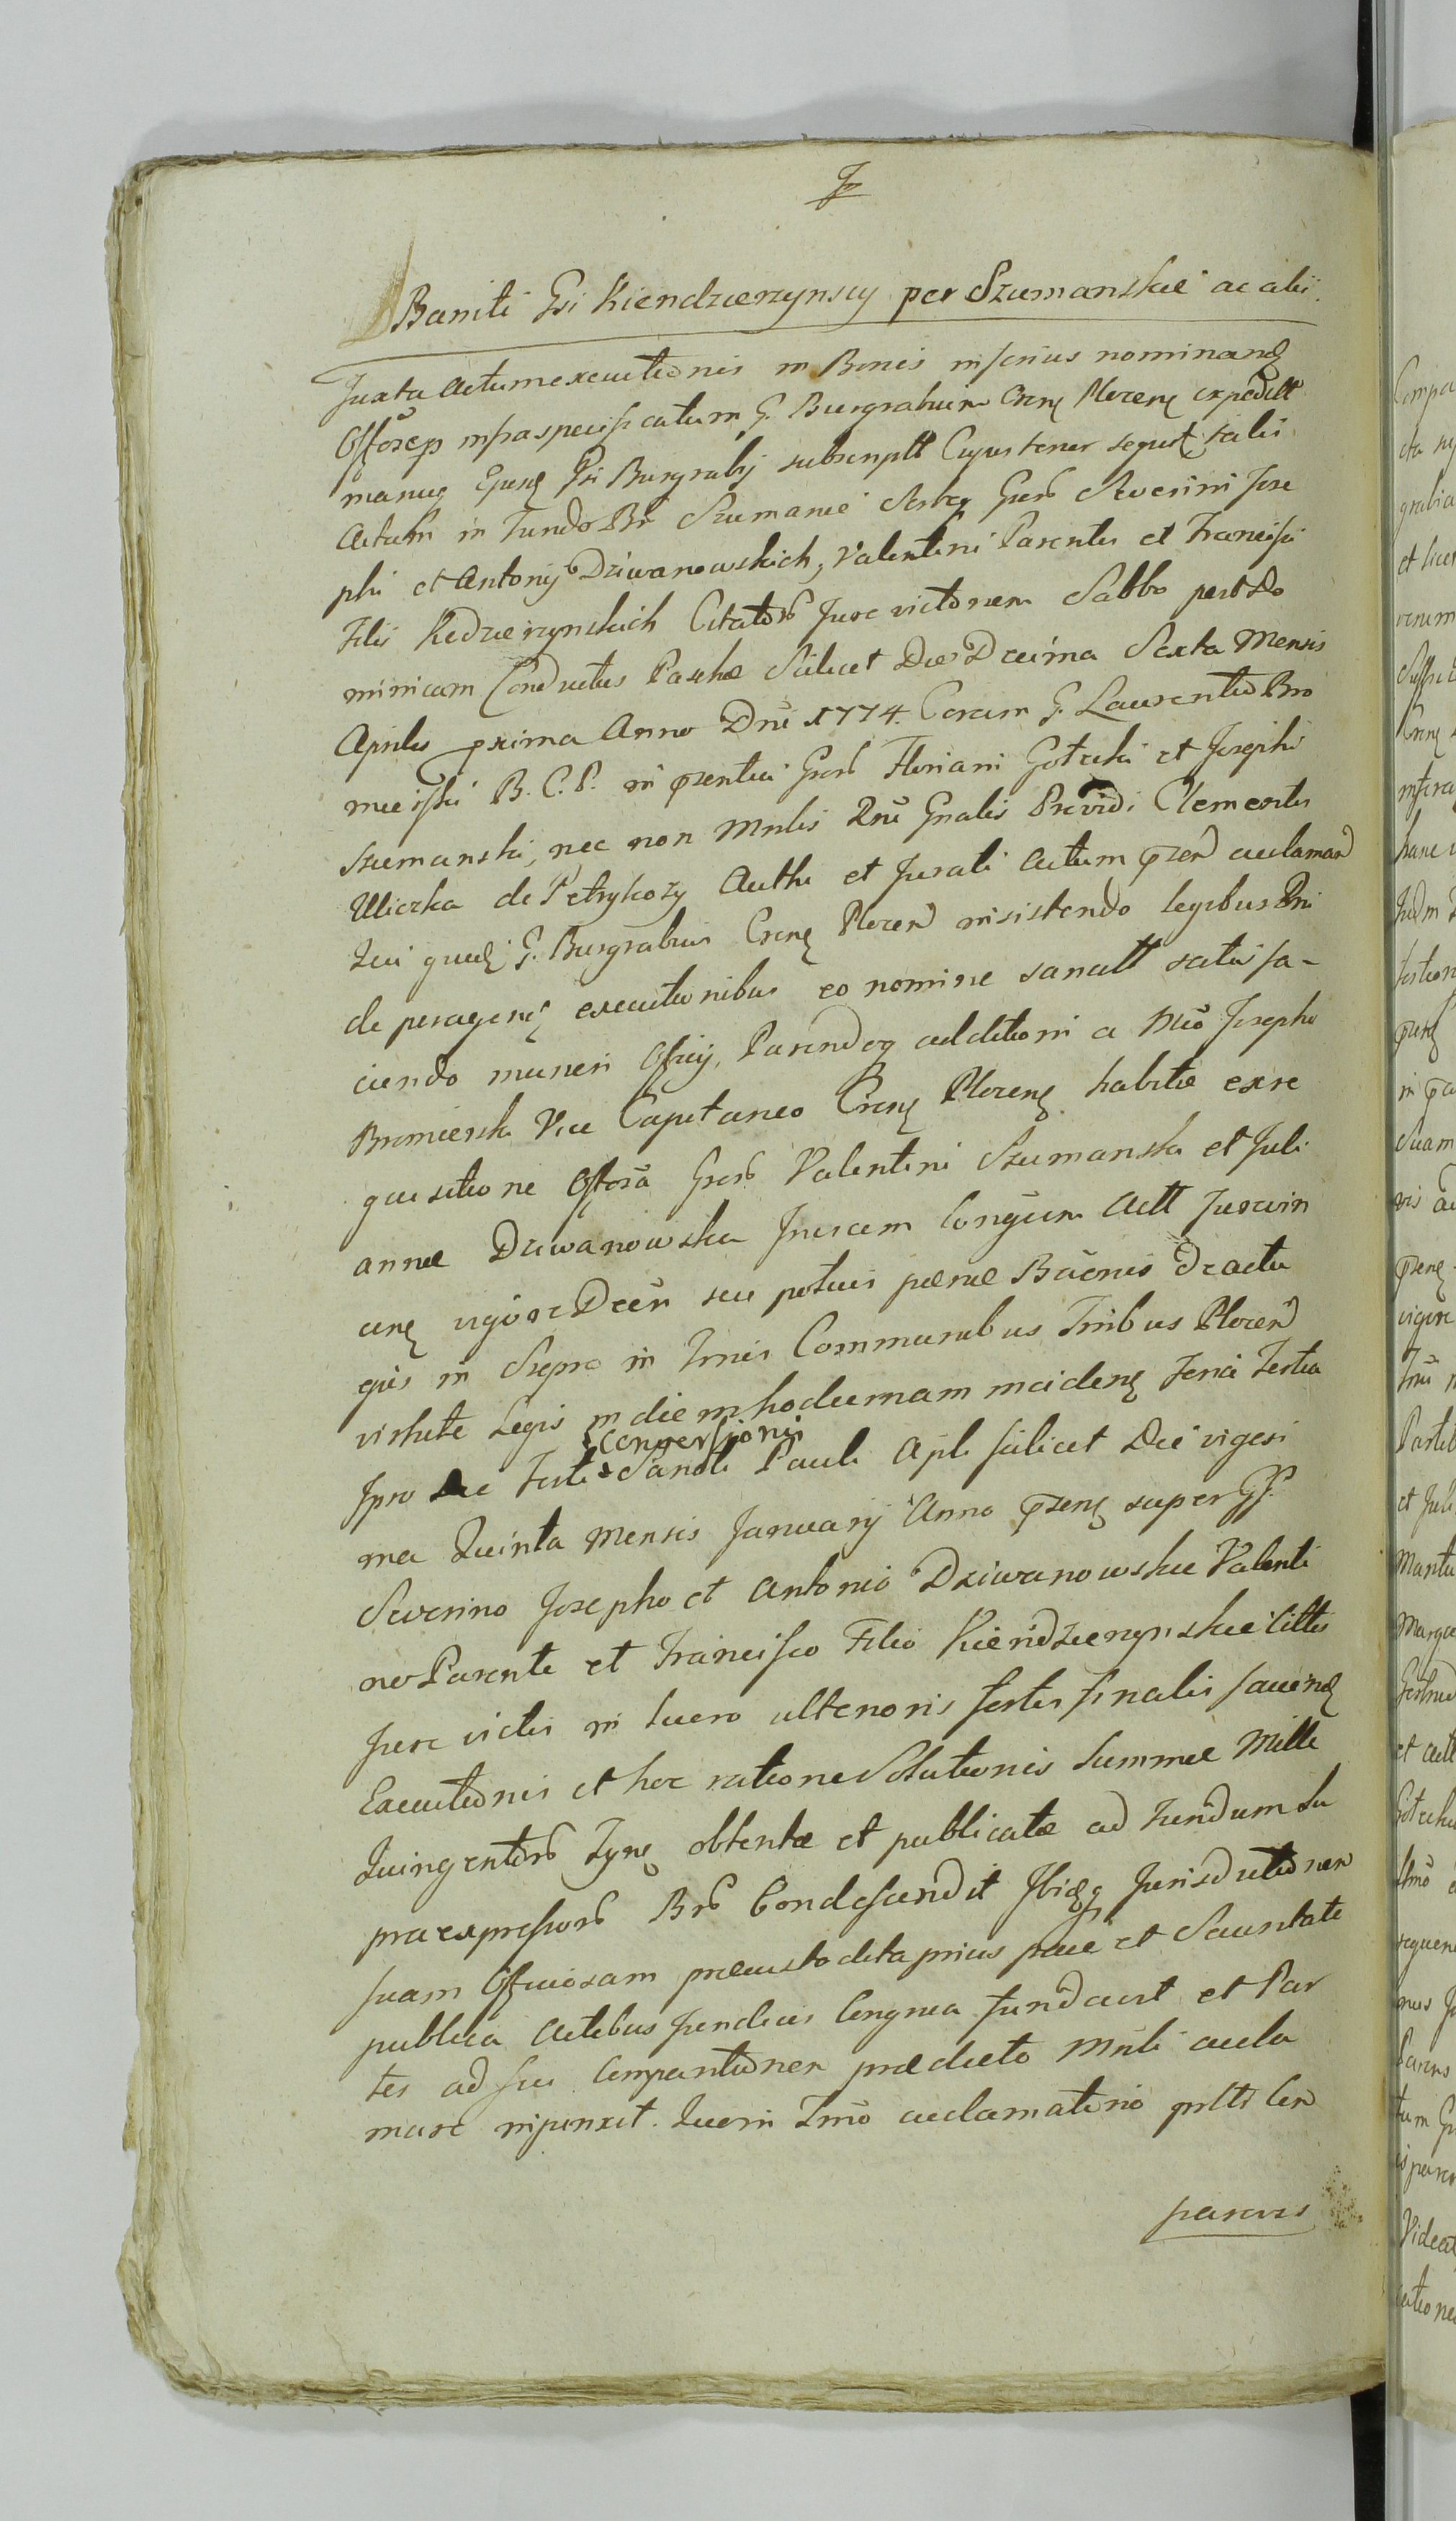 Baniti Gsi Kiendzierzynscy per Szumanskie ac alii.
Juxta Actum executionis in Bonis inferius nominand
Offosep infraspecificatum G. Burgrabium Crens Plocens expeditt
manuq Ejusq Gsi Burgrabij subscriptt Cujus tenor sequit talis
Actum in Fundo Br Szumanie Gsrb Severini Jose
phi et Antonij Dziwanowskich, Valentini Parentis et Francisci
Filii Kedzierzynskich Citatorb Jure victorum Sabbo post Do
minicam Conductus Paschæ Scilicet Die Decima Sexta Mensis
Aprilis pxima Anno Dni 1774. Coram G. Laurentio Bro
mieiski B. C. P. in pzentia Gsrb Floriani Goteski et Josephi
Szumanski, nec non Mnlis Rni Gnalis Providi Clementis
Uliczka de Petrykozy Authi et Jurati Actum pzen acclamand
Qui quid G. Burgrabius Crens Plocen insistendo legibus Rni
de peragend executionibus eo nomine sancitt satisfa-
ciendo muneri Officij, Parendoq additioni a Mco Josepho
Bromierski Vice Capitaneo Crens Plocens habitæ ex re
quisitione Offosa Gsorb Valentini Szumanski et Juli
annæ Dziwanowska Invicem Conjgum Actt Jurevin
cens vigore Decr seu potius pœnæ Bacnis Dcactu
ejus in Srepro in Tnis Communibus Tribus Plocen
virtute Legis in diem hodiernam inciden Feria Tertia
Conversionis
Ipso Die Festi Sancti Pauli Apli scilicet Die vigesi
ma Quinta Mensis Januarij Anno pzens super GG.
Severino Josepho et Antonio Dziwanowskie Valenti
no Parente et Francisco Filio Kiendzierzynskie Cittis
Jure victis in lucro ulterioris fortis finalis faciend
Executionis et hoc ratione Solutionis Summæ Mille
Quingentorb Tyns obtentæ et publicatæ ad Fundum Su
praexpressorb Brb Condescendit Ibidq Jurisdictionem
suam Officiosam præcustodita prius pace et Securitate
publica Actibus Juridicis Congrua fundavit et Par
tes ad sui Comparitionem prædicto Mnli accla
mare injunxit. Quorum Imo acclamatorio prltt Con
parens